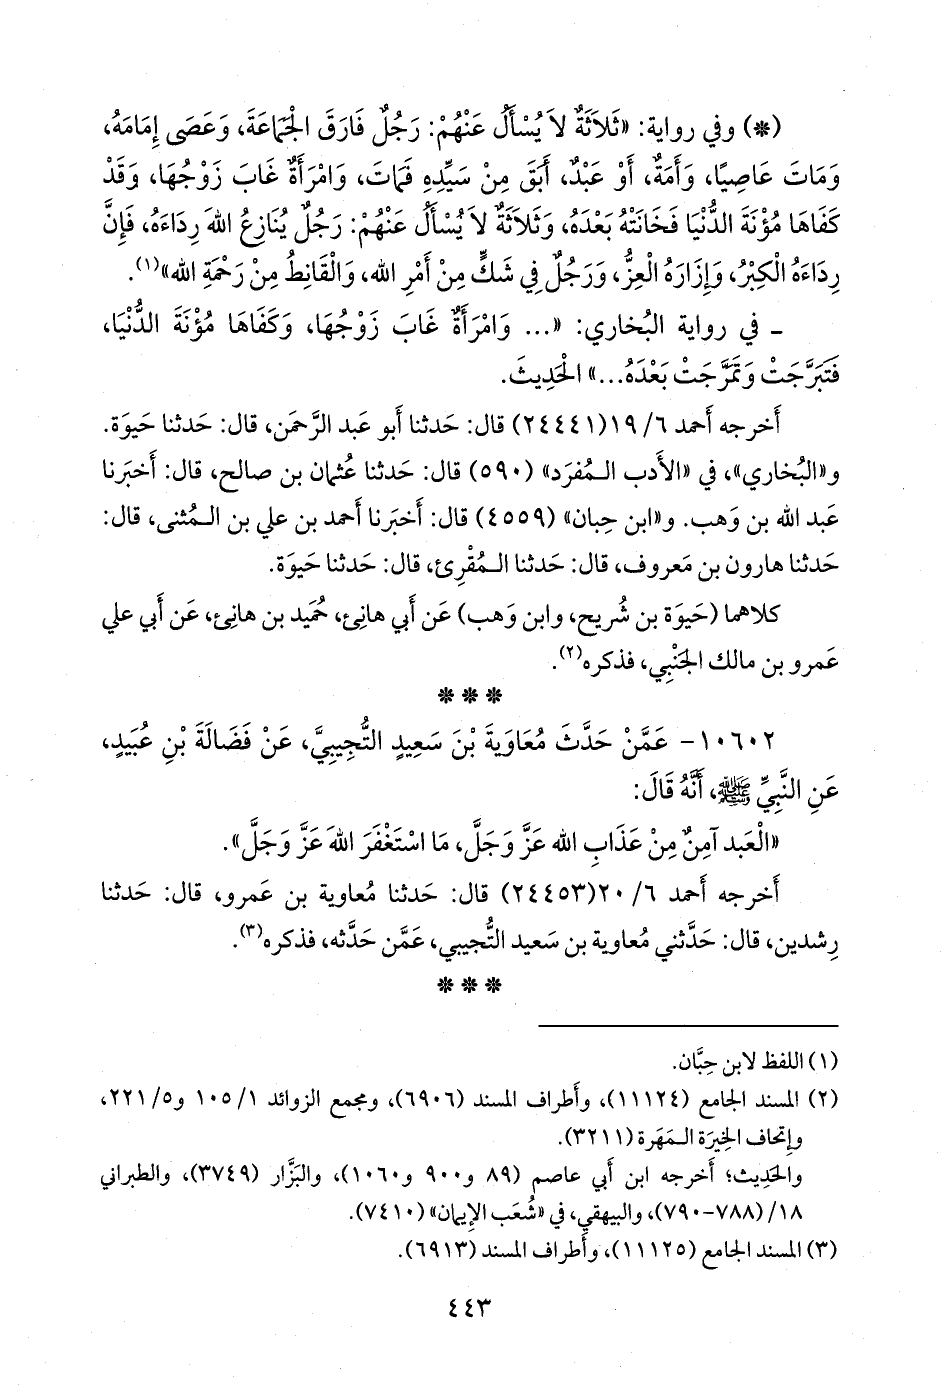 (*) وفي رواية: «ثَلَاثَةٌ لاَ يُسْأَلُ عَنْهُمْ: رَجُلٌ فَارَقَ الْجَمَاعَةَ، وَعَصَى إِمَامَهُ،
وَمَاتَ عَاصِيًا، وَأَمَةٌ، أَوْ عَبْدٌ، أَبَقَ مِنْ سَيِّدِهِ فَمَاتَ، وَامْرَأَةٌ غَابَ زَوْجُهَا، وَقَدْ
كَفَاهَا مُؤْنَةَ الدُّنْيَا فَخَانَتْهُ بَعْدَهُ، وَثَلاَثَةٌ لاَ يُسْأَلُ عَنْهُمْ: رَجُلٌ يُنَازِعُ اللهَ رِدَاءَهُ، فَإِنَّ
رِدَاءَهُ الْكِبْرُ، وَإِزَارَهُ الْعِزُّ، وَرَجُلٌ فِي شَكٍّ مِنْ أَمْرِ الله، وَالْقَانِطُ مِنْ رَحْمَةِ الله»(١).
ـ في رواية البُخاري: «... وَامْرَأَةٌ غَابَ زَوْجُهَا، وَكَفَاهَا مُؤْنَةَ الدُّنْيَا،
فَتَبَرَّجَتْ وَتَمَرَّجَتْ بَعْدَهُ...» الحْدِيثَ.
أَخرجه أَحمد ٦/ ١٩(٢٤٤٤١) قال: حَدثنا أَبو عَبد الرَّحمَن، قال: حَدثنا حَيوَة.
و«البُخاري»، في «الأَدب المُفرَد» (٥٩٠) قال: حَدثنا عُثمان بن صالح، قال: أَخبَرنا
عَبد الله بن وَهب. و«ابن حِبان» (٤٥٥٩) قال: أَخبَرنا أَحمد بن علي بن المُثنى، قال:
حَدثنا هارون بن مَعروف، قال: حَدثنا المُقْرِئ، قال: حَدثنا حَيوَة.
كلاهما (حَيوَة بن شُريح، وابن وَهب) عَن أَبي هانِئ، حُميد بن هانِئ، عَن أَبي علي
عَمرو بن مالك الجَنْبِي، فذكره(٢).
* * *
١٠٦٠٢- عَمَّنْ حَدَّثَ مُعَاوِيَةَ بْنَ سَعِيدٍ التُّجِيبِيَّ، عَنْ فَضَالَةَ بْنِ عُبَيدٍ،
عَنِ النَّبِيِّ ﷺ، أَنَّهُ قَالَ:
«الْعَبد آمِنٌ مِنْ عَذَابِ الله عَزَّ وَجَلَّ، مَا اسْتَغْفَرَ اللهَ عَزَّ وَجَلَّ».
أَخرجه أَحمد ٦/ ٢٠(٢٤٤٥٣) قال: حَدثنا مُعاوية بن عَمرو، قال: حَدثنا
رِشدين، قال: حَدَّثني مُعاوية بن سَعيد التُّجيبي، عَمَّن حَدَّثه، فذكره(٣).
* * *
(١) اللفظ لابن حِبَّان.
(٢) المسند الجامع (١١١٢٤)، وأَطراف المسند (٦٩٠٦)، ومجمع الزوائد ١/ ١٠٥ و٥/ ٢٢١،
وإِتحاف الخِيرَة المَهَرة (٣٢١١).
والحَدِيث؛ أَخرجه ابن أَبي عاصم (٨٩ و٩٠٠ و١٠٦٠)، والبَزَّار (٣٧٤٩)، والطبراني
١٨/ (٧٨٨-٧٩٠)، والبيهقي، في «شُعَب الإِيمان» (٧٤١٠).
(٣) المسند الجامع (١١١٢٥)، وأَطراف المسند (٦٩١٣).
٤٤٣